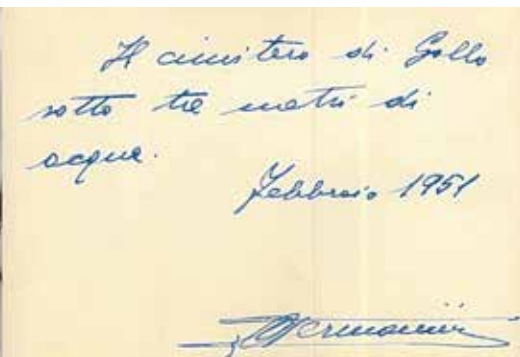 Il cimitero di Gallo
sotto tre metri di
acqua.
Febbraio 1951